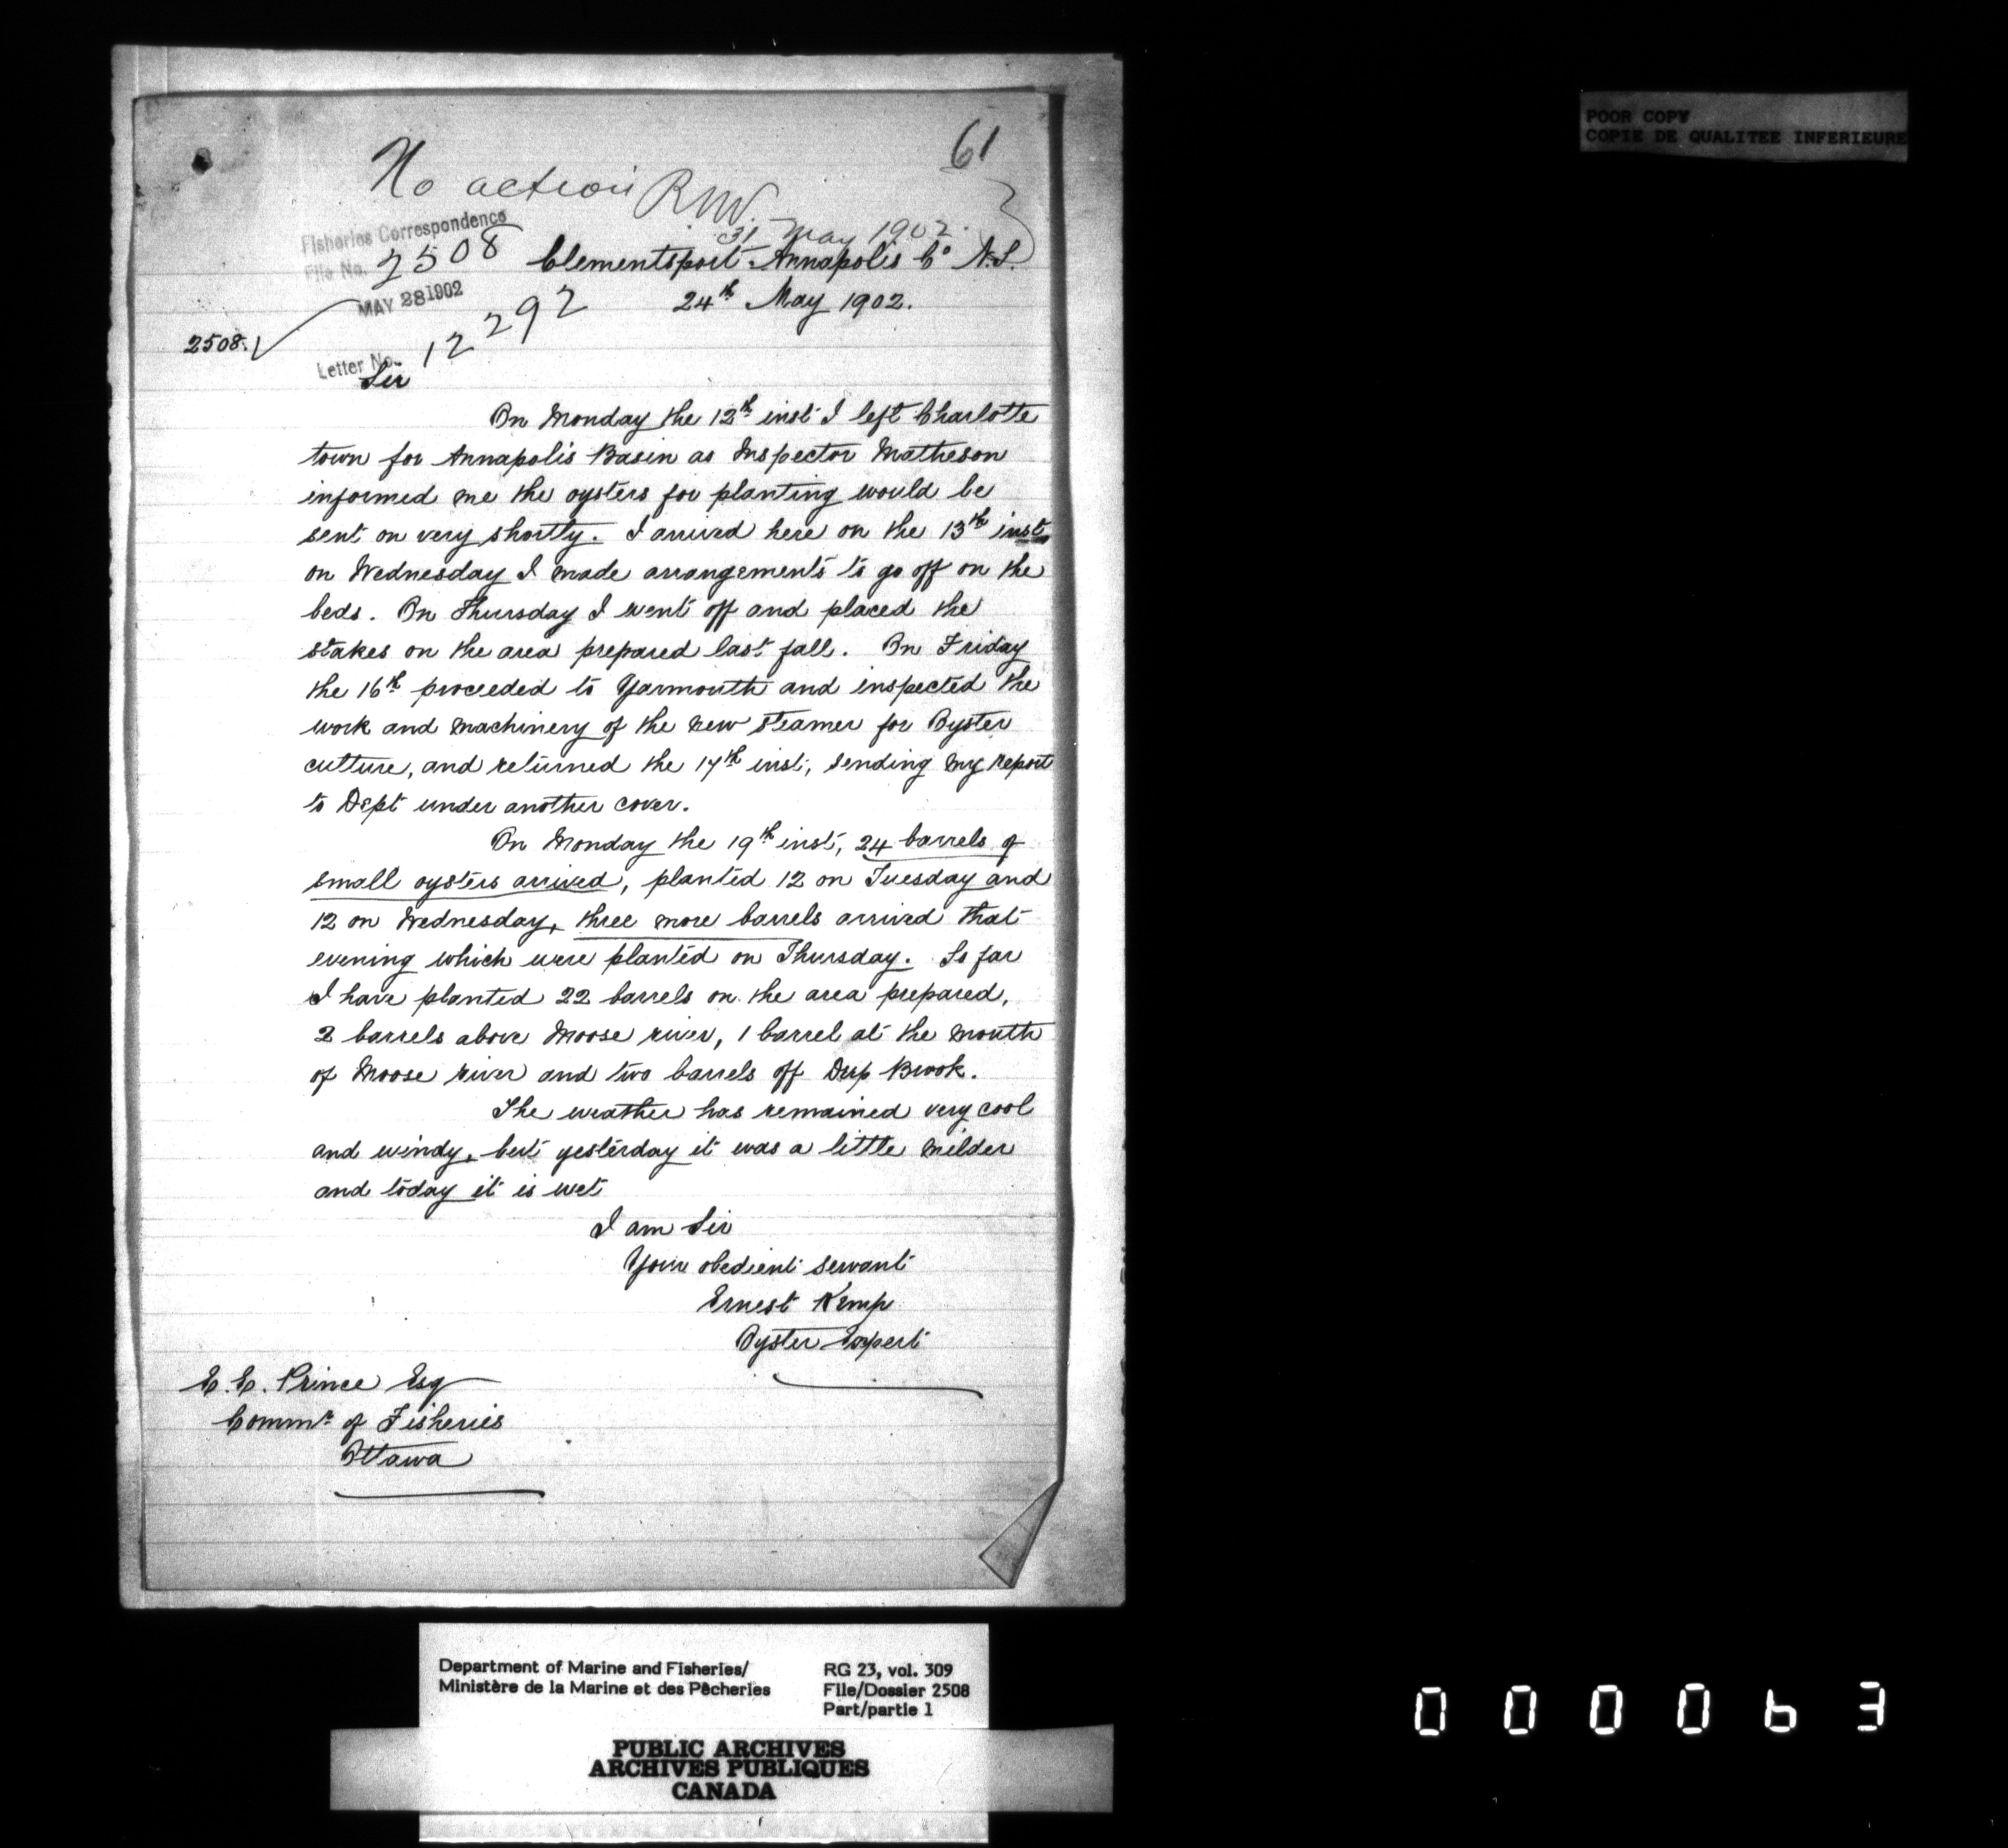 61
No action RNV.
31 May 1902.
Fisheries Correspondence
File No. 2508
MAY 28 1902
Clementsport Annapolis Co N.S.
24th May 1902.
2508.
Letter No. 12292
Sir
On Monday the 12th inst I left Charlotte
town for Annapolis Basin as Inspector Matheson
informed me the oysters for planting would be
sent on very shortly. I arrived here on the 13th inst,
on Wednesday I made arrangements to go off on the
beds. On Thursday I went off and placed the
stakes on the area prepared last fall. On Friday
the 16th proceeded to Yarmouth and inspected the
work and machinery of the new steamer for Oyster
culture, and returned the 17th inst, sending my report
to Dept under another cover.
On Monday the 19th inst, 24 barrels of
small oysters arrived, planted 12 on Tuesday and
12 on Wednesday, three more barrels arrived that
evening which were planted on Thursday. So far
I have planted 22 barrels on the area prepared,
2 barrels above Moose river, 1 barrel at the mouth
of Moose river and two barrels off Deep Brook.
The weather has remained very cool
and windy, but yesterday it was a little milder
and today it is wet
I am Sir
Your obedient servant
Ernest Kemp
Oyster Expert
E. E. Prince Esq
Commr of Fisheries
Ottawa
POOR COPY
COPIE DE QUALITEE INFERIEURE
Department of Marine and Fisheries/
Ministère de la Marine et des Pêcheries
RG 23, vol. 309
File/Dossier 2508
Part/partie 1
PUBLIC ARCHIVES
ARCHIVES PUBLIQUES
CANADA
000063